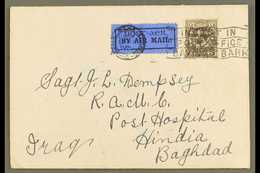 BY AIR MAIL
Sagt. J. L. Dempsey
R. A. M. C.
Post Hospital
Hindia
Baghdad
Iraq